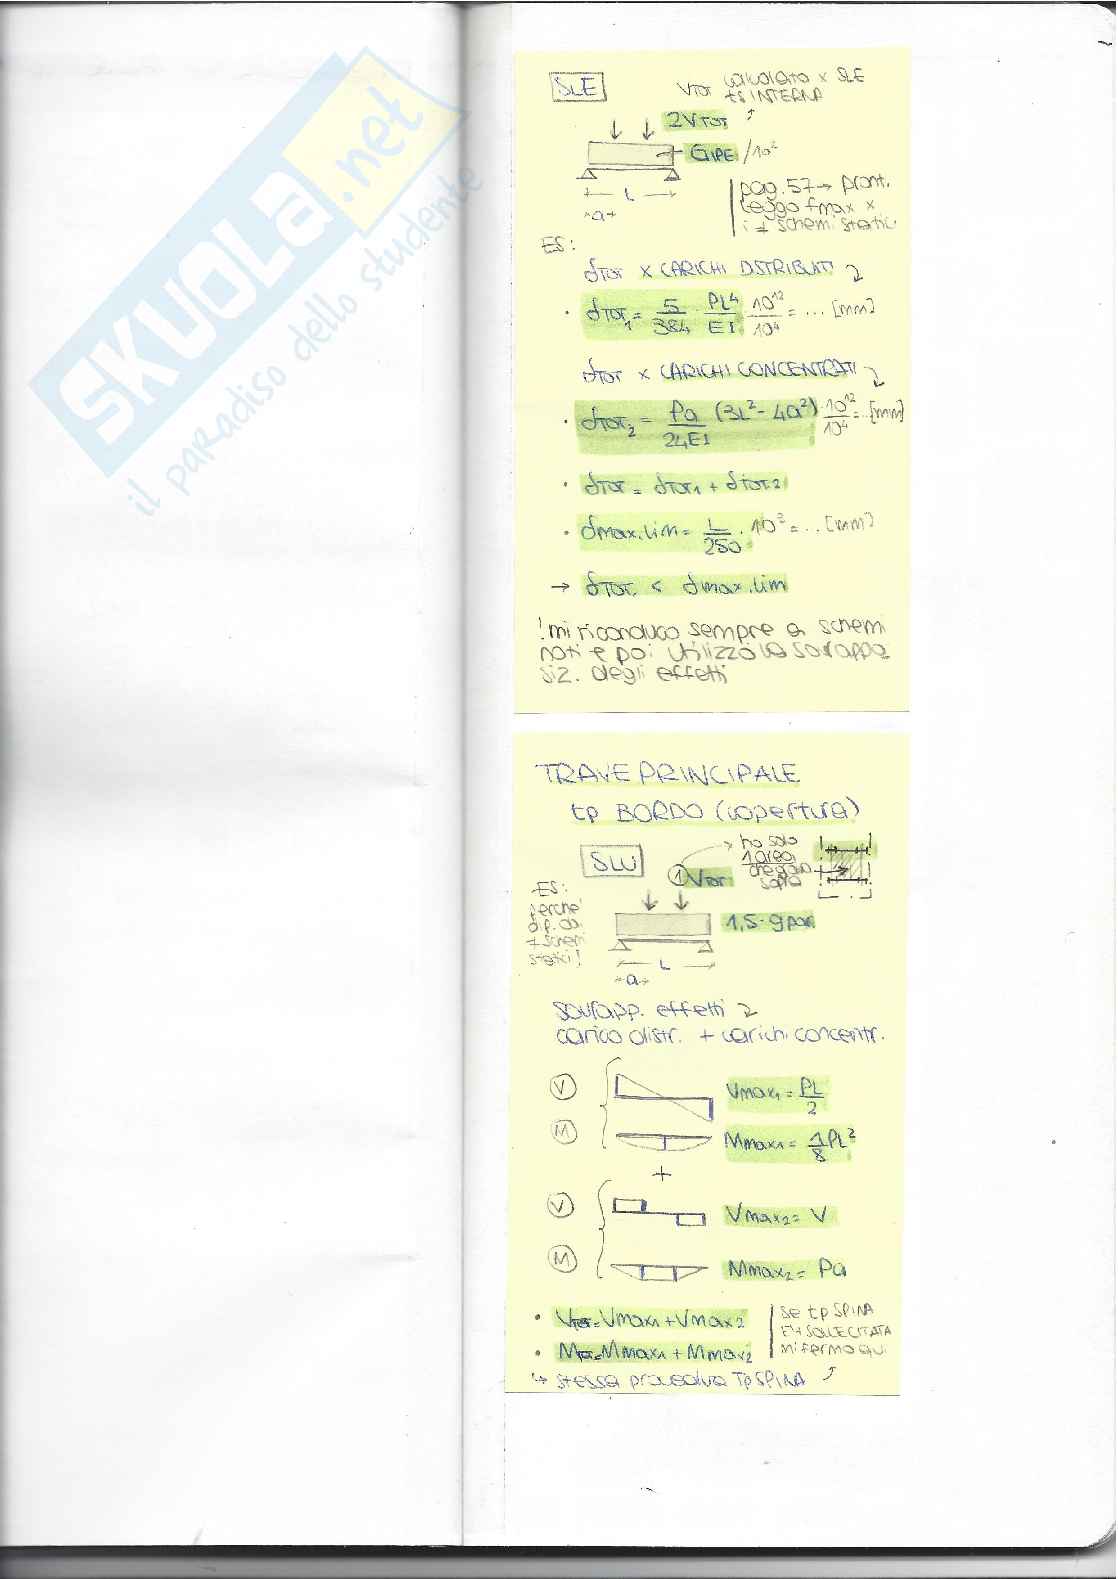 SKUOLA.net
il paradiso dello studente
SLE
VTOT calcolato x SLE
ts INTERNA
2VTOT
GIPE /10²
L
a
pag. 57 → pront.
leggo fmax x
i ≠ schemi statici
ES:
δTOT x CARICHI DISTRIBUITI
• δTOT1 = 5/384 · PL⁴/EI · 10¹²/10⁴ = ... [mm]
δTOT x CARICHI CONCENTRATI
• δTOT2 = Pa/24EI (3L² - 4a²) · 10¹²/10⁴ = ..[mm]
• δTOT = δTOT1 + δTOT2
• δmax.lim = L/250 · 10³ = .. [mm]
→ δTOT. < δmax.lim
! mi riconduco sempre a schemi
noti e poi utilizzo la sovrappo
siz. degli effetti
TRAVE PRINCIPALE
tp BORDO (copertura)
SLU
1 VTOT
ho solo
1 area
che
sopra
ES:
perché
≠ schemi
statici!
1,5 · gpar
L
a
sovrapp. effetti
carico distr. + carichi concentr.
V
Vmax1 = PL/2
M
Mmax1 = 1/8 PL²
+
V
Vmax2 = V
M
Mmax2 = Pa
• VTOT = Vmax1 + Vmax2
• MTOT = Mmax1 + Mmax2
se tp SPINA
È + SOLLECITATA
mi fermo qui
↳ stessa procedura Tp SPINA